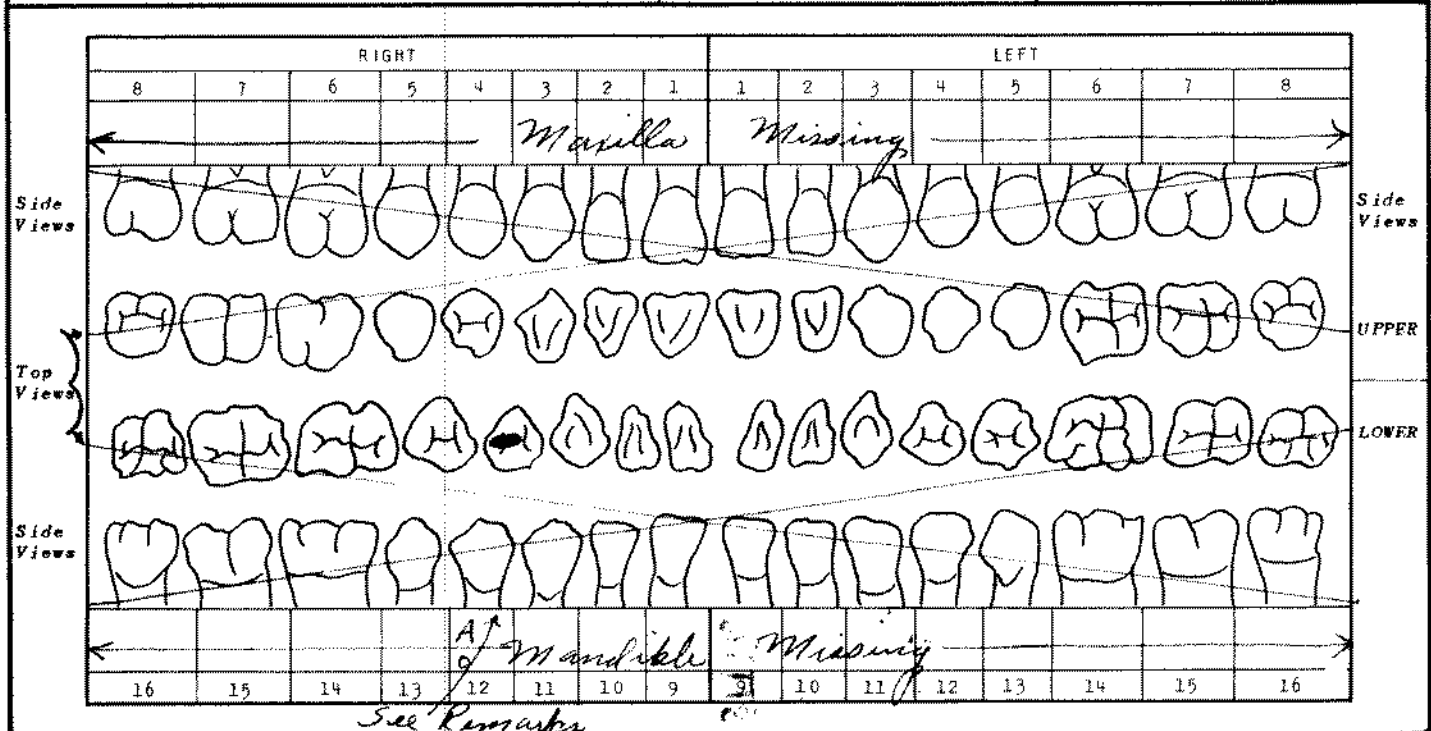 RIGHT LEFT
8 7 6 5 4 3 2 1 1 2 3 4 5 6 7 8
Maxilla Missing
Side Views Side Views
UPPER
Top Views
LOWER
Side Views
A
o Mandible Missing
16 15 14 13 12 11 10 9 9 10 11 12 13 14 15 16
See Remarks